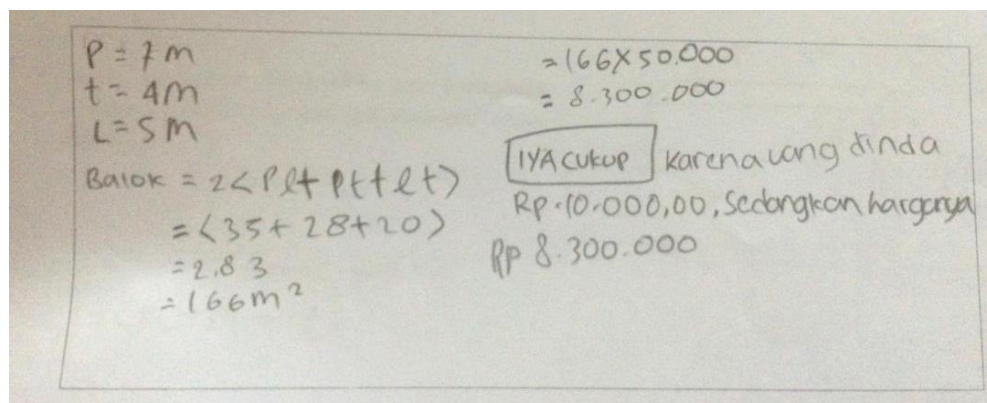 P = 7 m
t = 4m
L = 5 m
Balok = 2<Pl+Pt+lt>
= <35+28+20>
= 2.83
= 166m²
= 166X50.000
= 8.300.000
IYA CUKUP karena uang dinda
Rp.10.000,00, Sedangkan harganya
Rp 8.300.000